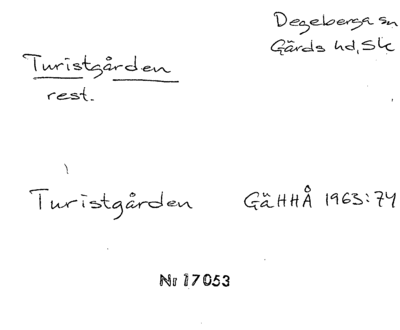 Degeberga sn
Gärds hd, Sk
Turistgården
rest.
Turistgården GäHHÅ 1963:74
Nr 17053